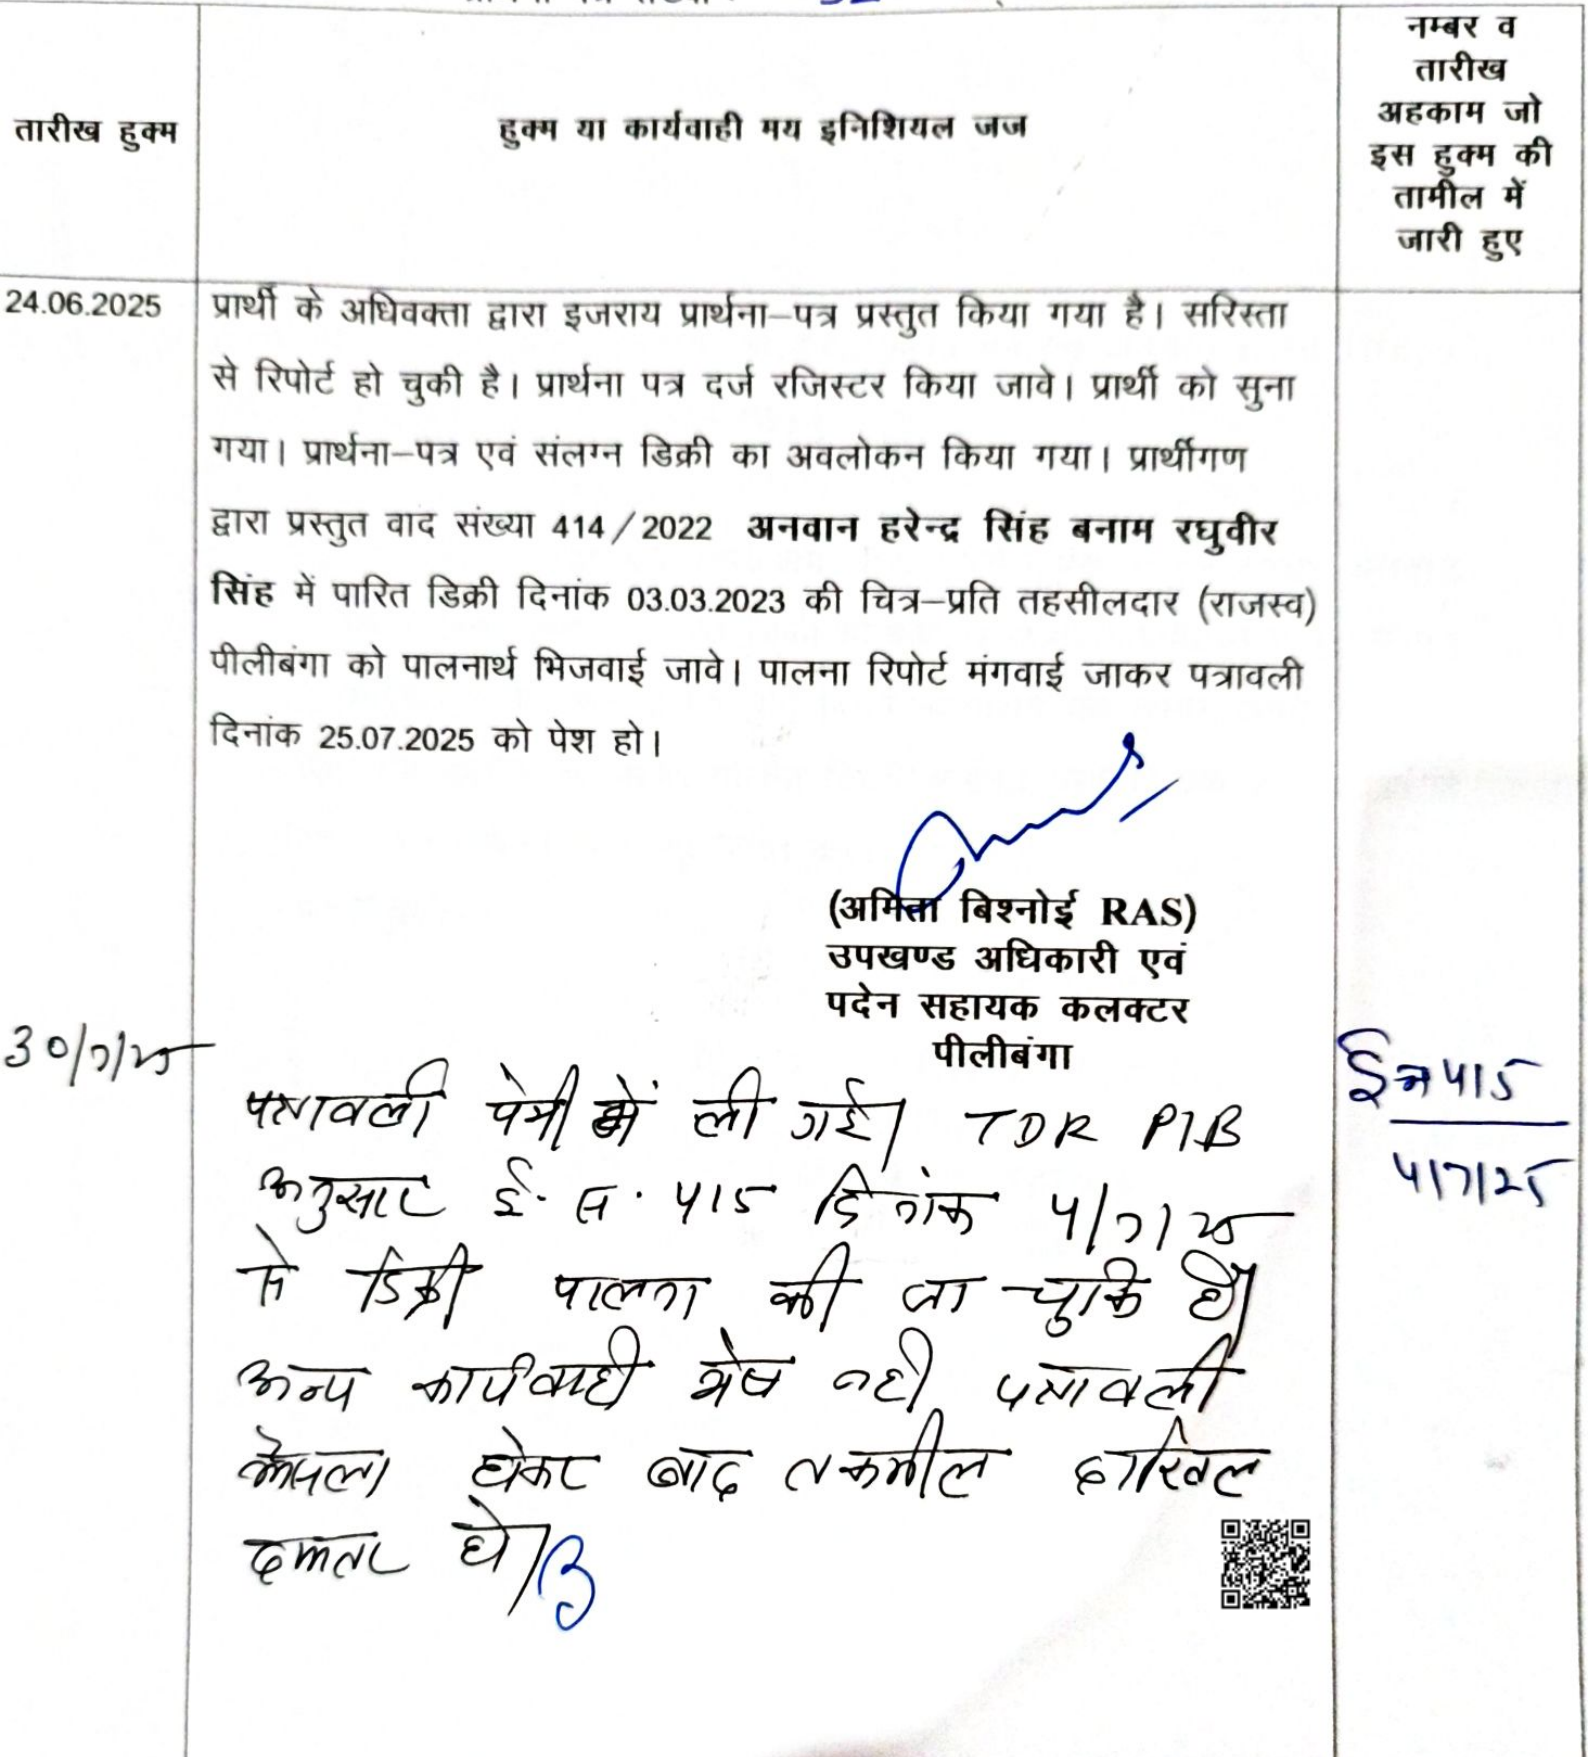 तारीख हुक्म
हुक्म या कार्यवाही मय इनिशियल जज
नम्बर व
तारीख
अहकाम जो
इस हुक्म की
तामील में
जारी हुए
24.06.2025
प्रार्थी के अधिवक्ता द्वारा इजराय प्रार्थना–पत्र प्रस्तुत किया गया है। सरिस्ता
से रिपोर्ट हो चुकी है। प्रार्थना पत्र दर्ज रजिस्टर किया जावे। प्रार्थी को सुना
गया। प्रार्थना–पत्र एवं संलग्न डिक्री का अवलोकन किया गया। प्रार्थीगण
द्वारा प्रस्तुत वाद संख्या 414/2022 अनवान हरेन्द्र सिंह बनाम रघुवीर
सिंह में पारित डिक्री दिनांक 03.03.2023 की चित्र–प्रति तहसीलदार (राजस्व)
पीलीबंगा को पालनार्थ भिजवाई जावे। पालना रिपोर्ट मंगवाई जाकर पत्रावली
दिनांक 25.07.2025 को पेश हो।
(अमिता बिश्नोई RAS)
उपखण्ड अधिकारी एवं
पदेन सहायक कलक्टर
पीलीबंगा
30/7/25
पत्रावली पेशी में ली गई। TDR PIB
अनुसार ई. स. 415 दिनांक 4/7/25
से डिक्री पालना की जा चुकि है।
अन्य कार्यवाही शेष नही पत्रावली
फैसला होकर बाद तकमील दाखिल
दफ्तर हो।
415
4/7/25